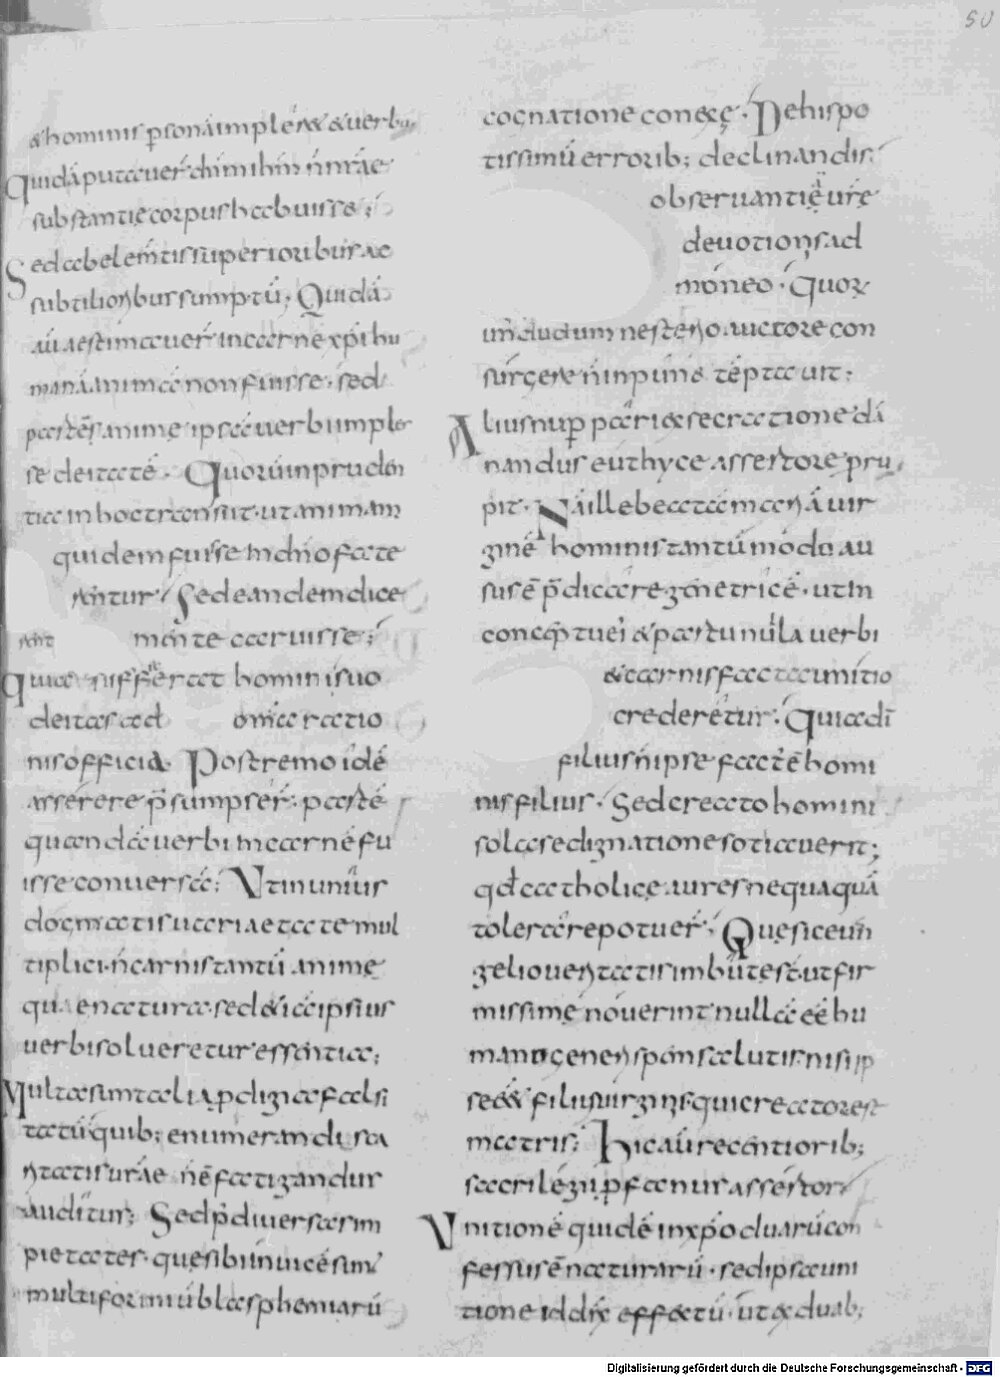 50
& hominis psonā impler&& uerbū
Quidā putauer̄ chim ihm n̄ nr̄ae
substantię corpus habuisse;
Sed ab elem̄tis superioribus ac
subtilioribus sumptū; Quidā
au̅ aestimauer̄ in carne xp̄i hu
manā animā non fuisse· sed
partēs animę ipsā uerbum imples
se deitatē· Quorū inpruden
tia in hoc transiit· ut animam
quidem fuisse in dn̄o fate
rentur· Sed eandem dice
rent mente caruisse;
quia sufficer& homini suo
deitas ad om̄ia ratio
nis officia· Postremo idē
asserere p̄sumpser̄· partē
quandā uerbi in carnē fu
isse conuersā; Ut in unius
dogmatis uariaetate mul
tiplici· n̄ carnis tantū animę
quae natura· sed & ia ipsius
uerbi solueretur essentia;
Multa sunt alia pdigia falsi
tatū quib; enumerandis sca
ntatis urae n̄ ē fatigandus
auditus; Sed p̄ diuersas im
pietates· quę sibi inuicē sunt
multiformiū blasphemiarū
cognatione conexę· De his po
tissimū errorib; declinandis
obseruantię urę
deuotionē ad
moneo· Quor
un̄ dudum nestorio auctore con
surgere n̄ inpunē tēptauit;
Alius nup̄ pari exsecratione dā
nandus euthyce assertore pru
pit· Nā ille beatā mariā uir
ginē hominis tantū modo au
sus ē p̄dicare genetricē· ut in
conceptu ei & partu nulla uerbi
& carnis facta unitio
crederetur; Quia dī
filius n̄ ipse factē homi
nis filius· Sed creato homini
sola se dignatione sociauerit;
qd̄ catholicę aures nequaquā
tolerare potuer̄; Quę sic eun̄
gelio ueritatis imbutę s̄t· ut fir
missimę nouerint· nullā eē hu
mano generi spem salutis· nisi ip
se ess& filius uirginis qui creator est
matris; Hic aū recentiorib;
sacrilegii pfanus assertor
Unitionē quidē in xp̄o duarū con
fessus ē naturarū· sed ipsa uni
tione id dix̄ effectū· ut ex duab;
Digitalisierung gefördert durch die Deutsche Forschungsgemeinschaft - DFG